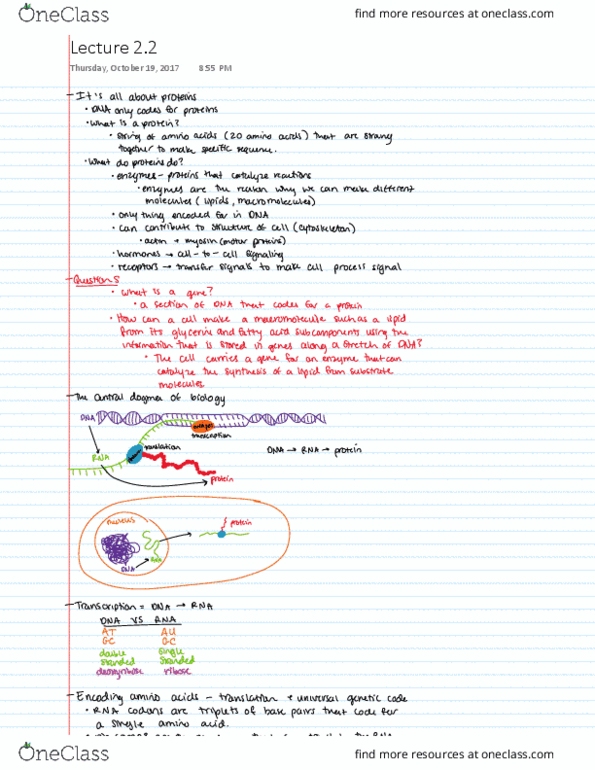 OneClass
find more resources at oneclass.com
Lecture 2.2
Thursday, October 19, 2017 8:55 PM
- It's all about proteins
• DNA only codes for proteins
• What is a protein?
• String of amino acids (20 amino acids) that are strung
together to make specific sequence.
• What do proteins do?
• enzymes - proteins that catalyze reactions
• enzymes are the reason why we can make different
molecules (lipids, macromolecules)
• only thing encoded for in DNA
• can contribute to structure of cell (cytoskeleton)
• actin + myosin (motor proteins)
• hormones → cell - to - cell signaling
• receptors → transfer signals to make cell process signal
- Questions
• What is a gene?
• a section of DNA that codes for a protein
• How can a cell make a macromolecule such as a lipid
from its glycerin and fatty acid subcomponents using the
information that is stored in genes along a stretch of DNA?
• The cell carries a gene for an enzyme that can
catalyze the synthesis of a lipid from substrate
molecules
- The central dogma of biology
DNA
transcription
translation
RNA
DNA → RNA → protein
protein
nucleus
protein
RNA
DNA
- Transcription = DNA → RNA
DNA VS RNA
AT AU
GC GC
double single
stranded stranded
deoxyribose ribose
- Encoding amino acids - translation + universal genetic code
• RNA codons are triplets of base pairs that code for
a single amino acid.
OneClass
find more resources at oneclass.com